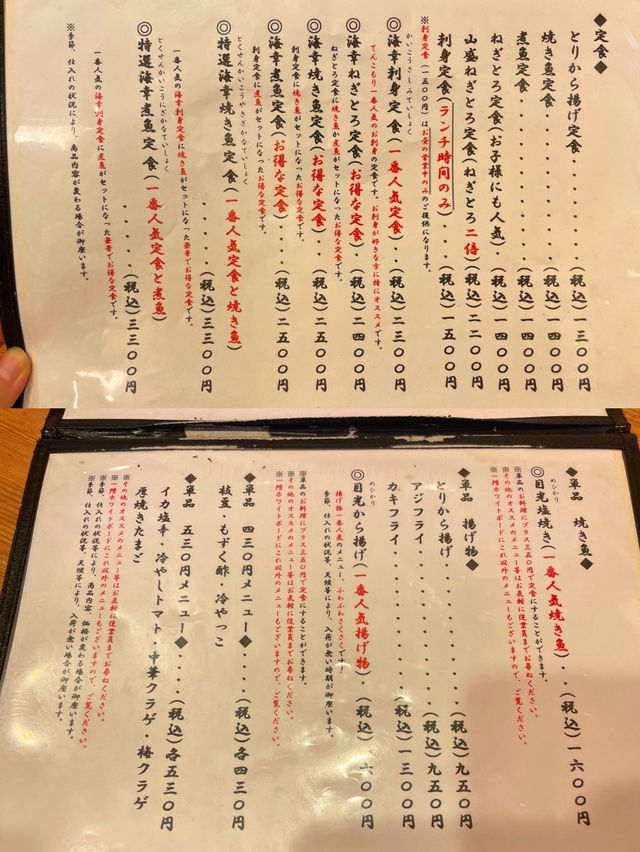 ◆定食◆
とりから揚げ定食・・・・・・・・(税込)一三〇〇円
焼き魚定食・・・・・・・・・・(税込)一四〇〇円
煮魚定食・・・・・・・・・・(税込)一四〇〇円
ねぎとろ定食(お子様にも人気)・(税込)一四〇〇円
山盛ねぎとろ定食(ねぎとろ二倍)(税込)二二〇〇円
刺身定食(ランチ時間のみ)・・・(税込)一五〇〇円
※刺身定食(一五〇〇円)はお昼の営業中のみのご提供になります。
かいこうさしみていしょく
◎海幸刺身定食(一番人気定食)・(税込)二三〇〇円
てんこもり一番人気のお刺身の定食です。お刺身が好きな方に特にオススメです。
◎海幸ねぎとろ定食(お得な定食)・(税込)二四〇〇円
ねぎとろ定食に焼き魚か煮魚がセットになったお得な定食です。
◎海幸焼き魚定食(お得な定食)・・(税込)二五〇〇円
刺身定食に焼き魚がセットになったお得な定食です。
◎海幸煮魚定食(お得な定食)・・・(税込)二五〇〇円
刺身定食に煮魚がセットになったお得な定食です。
とくせんかいこうやきざかなていしょく
◎特選海幸焼き魚定食(一番人気定食と焼き魚)
・・・・・(税込)三三〇〇円
一番人気の海幸刺身定食に焼き魚がセットになった豪華でお得な定食です。
とくせんかいこうにざかなていしょく
◎特選海幸煮魚定食(一番人気定食と煮魚)
・・・・・(税込)三三〇〇円
一番人気の海幸刺身定食に煮魚がセットになった豪華でお得な定食です。
※季節、仕入れの状況により、商品内容が変わる場合が御座います。
◆単品 焼き魚◆
めひかり
◎目光塩焼き(一番人気焼き魚)・・(税込)一六〇〇円
※単品のお料理にプラス三五〇円で定食にすることができます。
※その他のオススメのメニュー等はお気軽に従業員までお尋ねください。
※一階ホワイトボードにこれ以外のメニューもございますので、ご覧ください。
◆単品 揚げ物◆
とりから揚げ・・・・・・・・・(税込)九五〇円
アジフライ・・・・・・・・・・(税込)九五〇円
カキフライ・・・・・・・・・・(税込)一三〇〇円
めひかり
◎目光から揚げ(一番人気揚げ物)・(税込)一六〇〇円
揚げ物一番人気のメニュー、ふわふわさくさくです!
季節、仕入れの状況等、天候等により、入荷が無い時期が御座います。
※単品のお料理にプラス三五〇円で定食にすることができます。
※その他のオススメのメニュー等はお気軽に従業員までお尋ねください。
※一階ホワイトボードにこれ以外のメニューもございますので、ご覧ください。
◆単品 四三〇円メニュー◆・・・(税込)各四三〇円
枝豆・もずく酢・冷やっこ
◆単品 五三〇円メニュー◆・・・(税込)各五三〇円
イカ塩辛・冷やしトマト・中華クラゲ・梅クラゲ
厚焼きたまご
※その他のオススメのメニュー等はお気軽に従業員までお尋ねください。
※一階ホワイトボードにこれ以外のメニューもございますので、ご覧ください。
※季節、仕入れの状況等により、商品内容、価格が変わる場合が御座います。
※季節、仕入れの状況等、天候等により、入荷が無い場合が御座います。